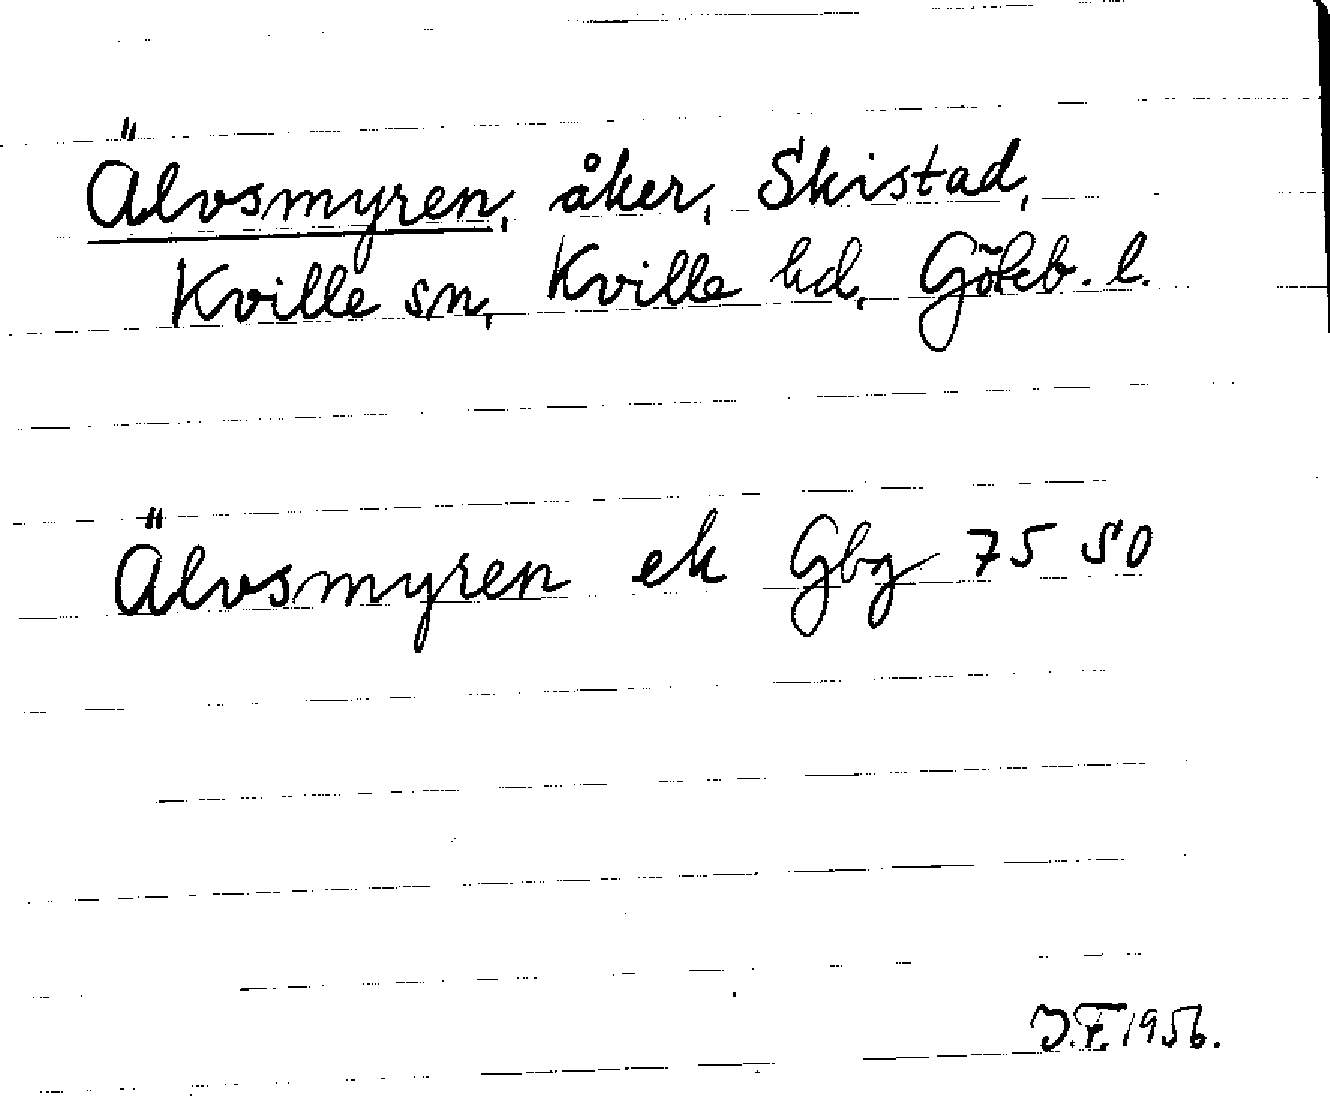 Älvsmyren, åker, Skistad,
Kville sn, Kville hd, Göteb. l.
Älvsmyren ek Gbg 75 SO
J.F. 1956.